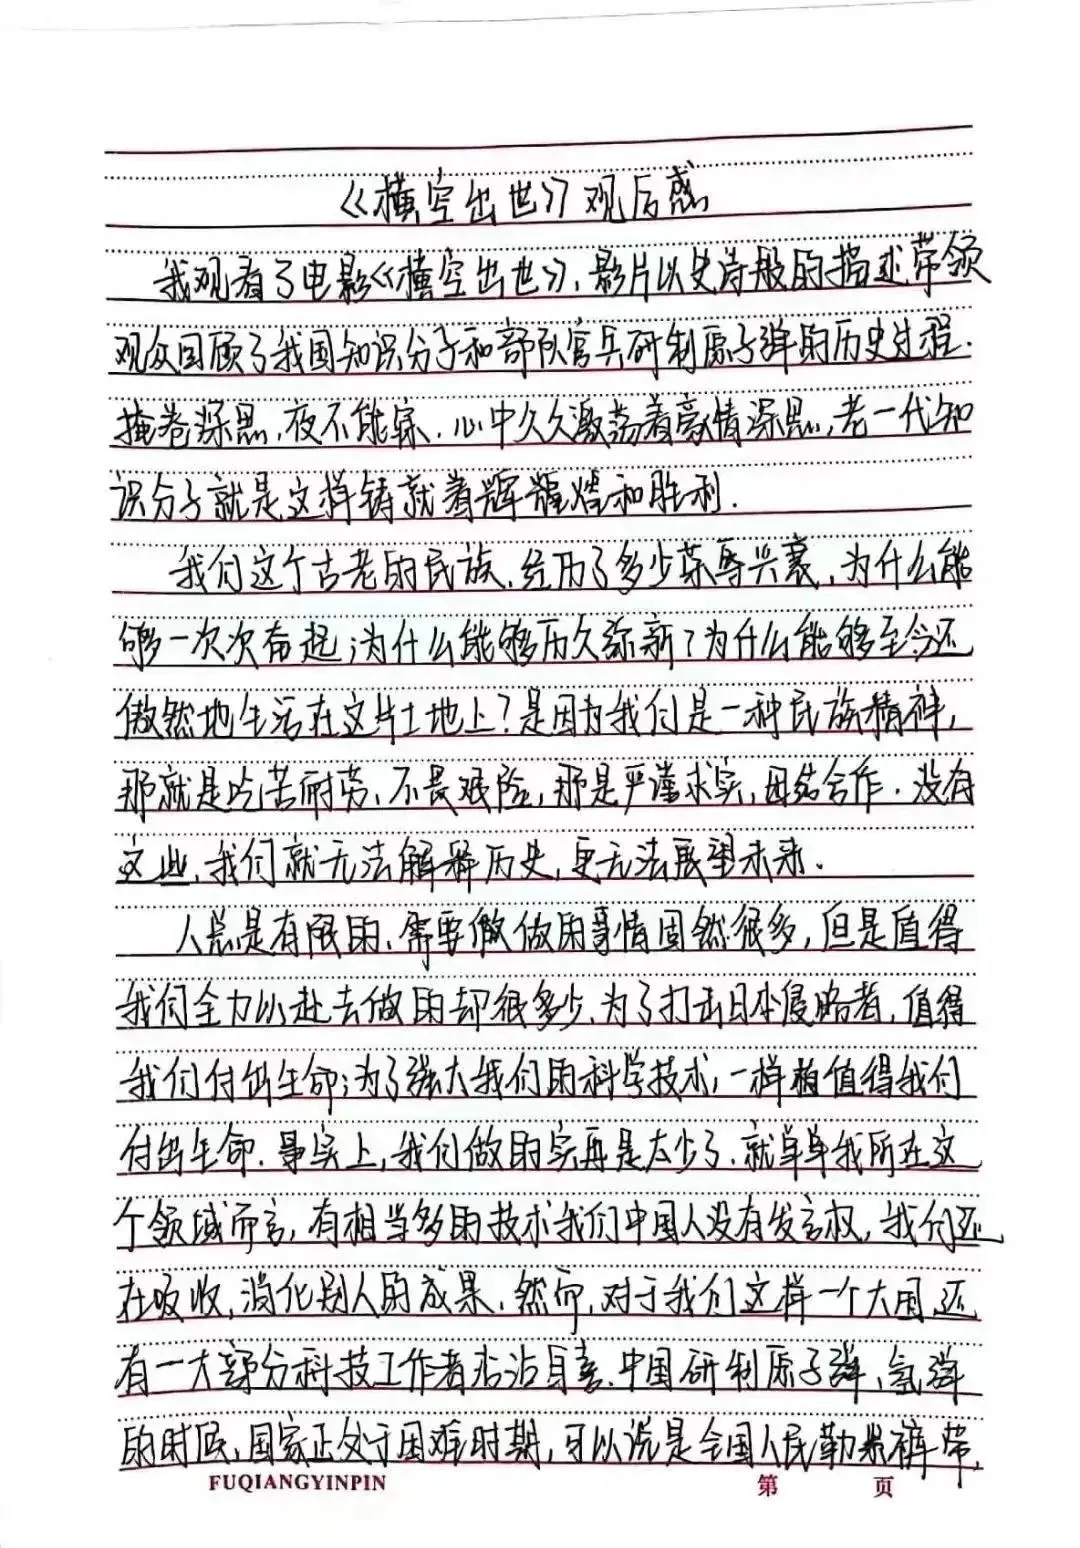 《横空出世》观后感
我观看了电影《横空出世》,影片以史诗般的描述带领
观众回顾了我国知识分子和部队官兵研制原子弹的历史过程.
掩卷深思,夜不能寐.心中久久激荡着豪情深思,老一代知
识分子就是这样铸就着辉煌和胜利.
我们这个古老的民族,经历了多少荣辱兴衰,为什么能
够一次次奋起;为什么能够历久弥新?为什么能够至今还
傲然地生活在这片土地上?是因为我们是一种民族精神,
那就是吃苦耐劳、不畏艰险,那是严谨求实,团结合作.没有
这些,我们就无法解释历史,更无法展望未来.
人总是有限的、需要做做的事情固然很多,但是值得
我们全力以赴去做的却很多少、为了打击日本侵略者,值得
我们付出生命;为了强大我们的科学技术,一样值得我们
付出生命.事实上,我们做的实再是太少了.就单单我所在这
个领域而言,有相当多的技术我们中国人没有发言权,我们还
在吸收,消化别人的成果、然而,对于我们这样一个大国,还
有一大部分科技工作者沾沾自喜、中国研制原子弹、氢弹
的时候,国家正处于困难时期,可以说是全国人民勒紧裤带,
FUQIANGYINPIN 第 页